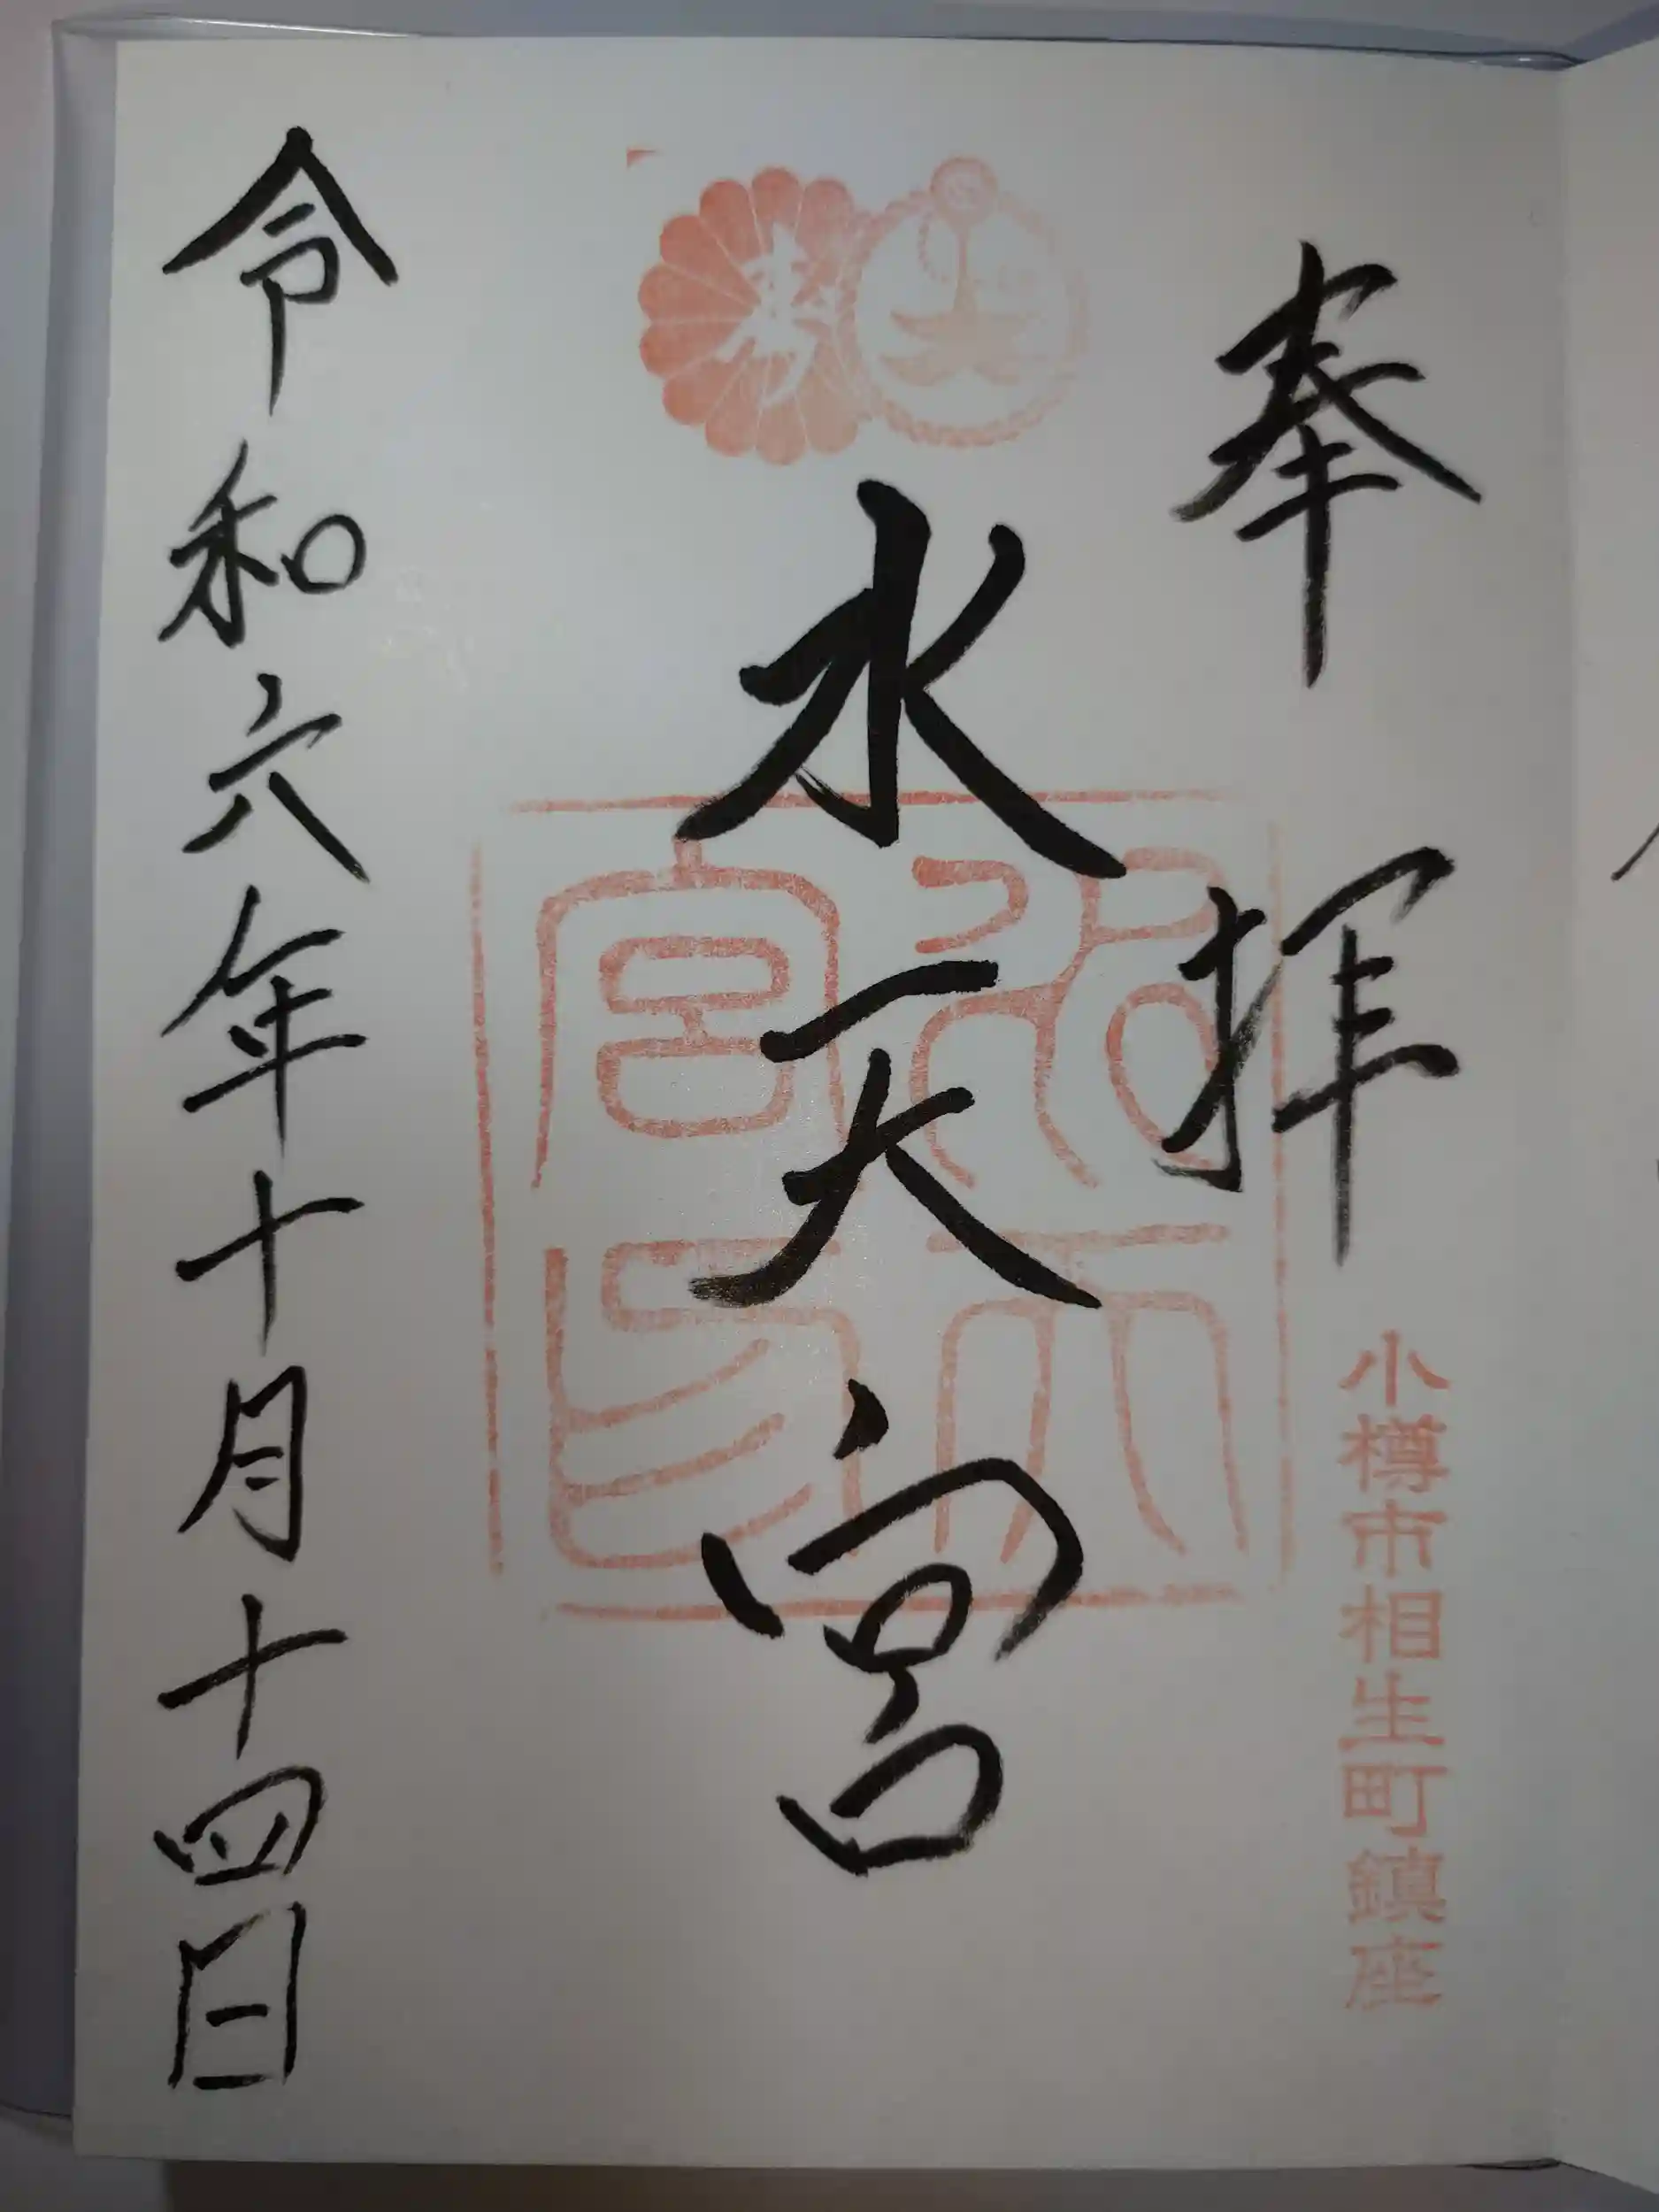 奉拝
小樽市相生町鎮座
水天宮
水天宮印
令和六年十月十四日